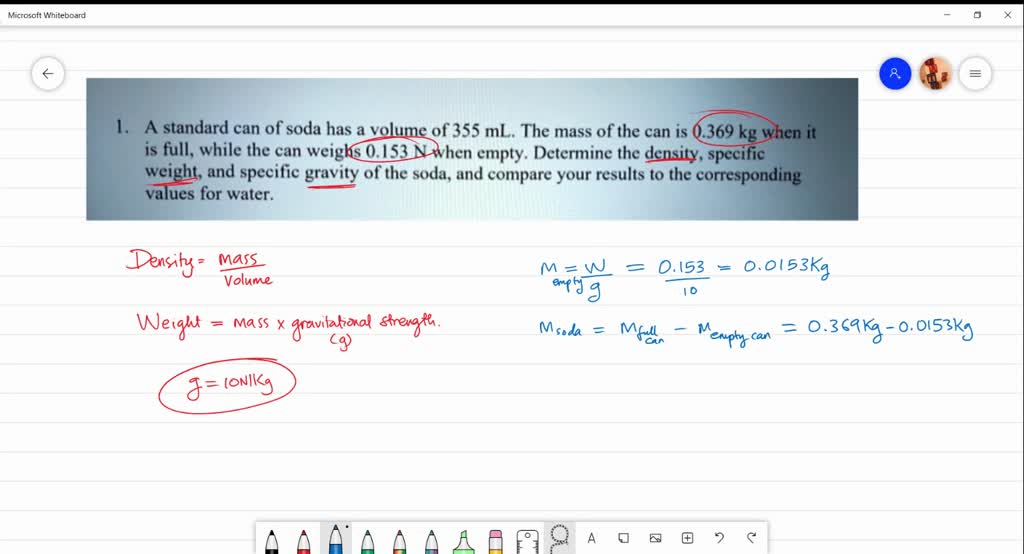 Microsoft Whiteboard
1. A standard can of soda has a volume of 355 mL. The mass of the can is 0.369 kg when it
is full, while the can weighs 0.153 N when empty. Determine the density, specific
weight, and specific gravity of the soda, and compare your results to the corresponding
values for water.
Density = mass / Volume
M empty = W / g = 0.153 / 10 = 0.0153Kg
Weight = mass x gravitational strength. (g)
Msoda = M full can - M empty can = 0.369Kg - 0.0153Kg
g = 10N/Kg
A